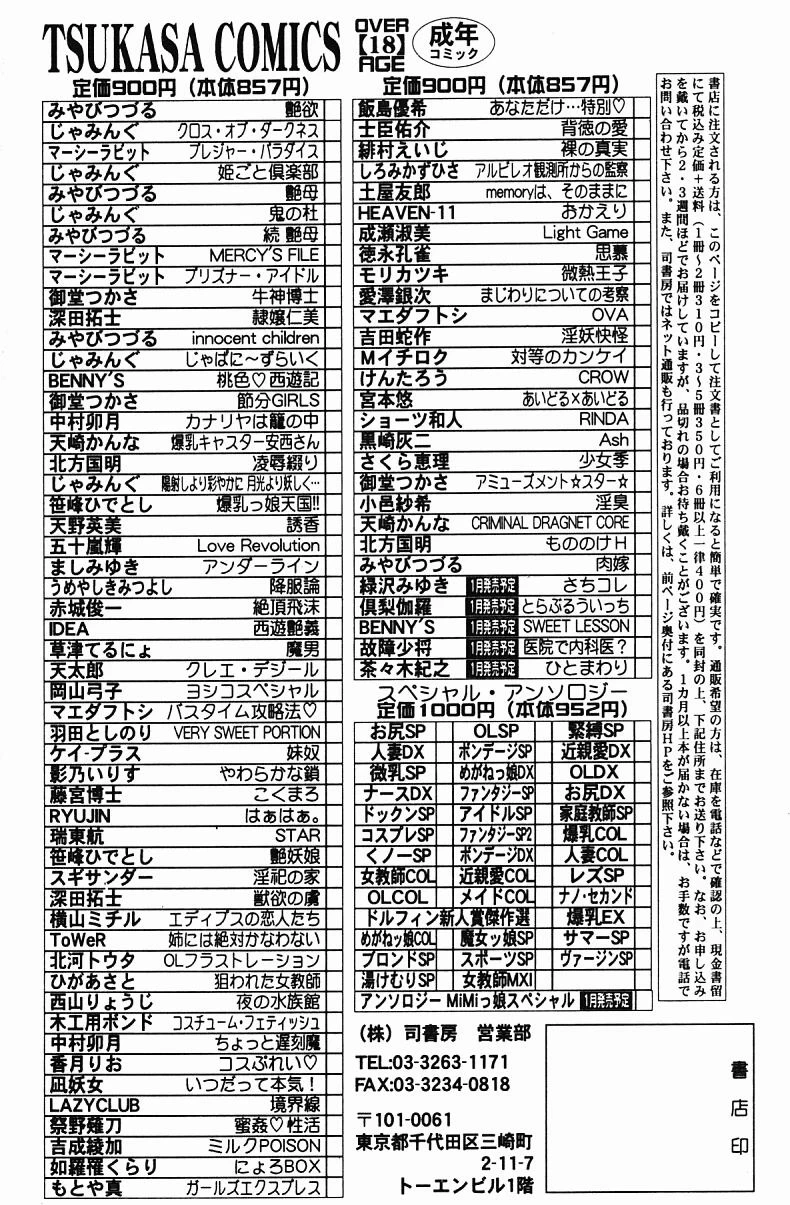 TSUKASA COMICS
OVER
【18】
AGE
成年
コミック
定価900円（本体857円）
みやびつづる 艶欲
じゃみんぐ クロス・オブ・ダークネス
マーシーラビット プレジャー・パラダイス
じゃみんぐ 姫ごと倶楽部
みやびつづる 艶母
じゃみんぐ 鬼の杜
みやびつづる 続 艶母
マーシーラビット MERCY'S FILE
マーシーラビット プリズナー・アイドル
御堂つかさ 牛神博士
深田拓士 隷嬢仁美
みやびつづる innocent children
じゃみんぐ じゃぱに〜ずらいく
BENNY'S 桃色♡西遊記
御堂つかさ 節分GIRLS
中村卯月 カナリヤは籠の中
天崎かんな 爆乳キャスター安西さん
北方国明 凌辱綴り
じゃみんぐ 陽射しより彩やかに 月光より妖しく…
笹峰ひでとし 爆乳っ娘天国!!
天野英美 誘香
五十嵐輝 Love Revolution
ましみゆき アンダーライン
うめやしきみつよし 降服論
赤城俊一 絶頂飛沫
IDEA 西遊艶義
草津てるにょ 魔男
天太郎 クレェ・デジール
岡山弓子 ヨシコスペシャル
マエダフトシ バスタイム攻略法♡
羽田としのり VERY SWEET PORTION
ケイ-プラス 妹奴
影乃いりす やわらかな鎖
藤宮博士 こくまろ
RYUJIN はぁはぁ。
瑞東航 STAR
笹峰ひでとし 艶妖娘
スギサンダー 淫祀の家
深田拓士 獣欲の虜
横山ミチル エディプスの恋人たち
ToWeR 姉には絶対かなわない
北河トウタ OLフラストレーション
ひがあさと 狙われた女教師
西山りょうじ 夜の水族館
木工用ボンド コスチューム・フェティッシュ
中村卯月 ちょっと遅刻魔
香月りお コスぷれい♡
凪妖女 いつだって本気！
LAZYCLUB 境界線
祭野薙刀 蜜姦♡性活
吉成綾加 ミルクPOISON
如羅罹くらり にょろBOX
もとや真 ガールズエクスプレス
定価900円（本体857円）
飯島優希 あなただけ…特別♡
士臣佑介 背徳の愛
緋村えいじ 裸の真実
しろみかずひさ アルビレオ観測所からの監察
土屋友郎 memoryは、そのままに
HEAVEN-11 おかえり
成瀬淑美 Light Game
徳永孔雀 思慕
モリカツキ 微熱王子
愛澤銀次 まじわりについての考察
マエダフトシ OVA
吉田蛇作 淫妖快怪
Mイチロク 対等のカンケイ
けんたろう CROW
宮本悠 あいどる×あいどる
ショーツ和人 RINDA
黒崎灰二 Ash
さくら恵理 少女季
御堂つかさ アミューズメント☆スター☆
小邑紗希 淫臭
天崎かんな CRIMINAL DRAGNET CORE
北方国明 もののけH
みやびつづる 肉嫁
緑沢みゆき 1月発売予定 さちコレ
倶梨伽羅 1月発売予定 とらぶるういっち
BENNY'S 1月発売予定 SWEET LESSON
故障少将 1月発売予定 医院で内科医？
茶々木紀之 1月発売予定 ひとまわり
スペシャル・アンソロジー
定価1000円（本体952円）
お尻SP OLSP 緊縛SP
人妻DX ボンデージSP 近親愛DX
微乳SP めがねっ娘DX OLDX
ナースDX ファンタジーSP お尻DX
ドックンSP アイドルSP 家庭教師SP
コスプレSP ファンタジーSP2 爆乳COL
くノーSP ボンデージDX 人妻COL
女教師COL 近親愛COL レズSP
OLCOL メイドCOL ナノ・セカンド
ドルフィン新人賞傑作選 爆乳EX
めがねッ娘COL 魔女ッ娘SP サマーSP
ブロンドSP スポーツSP ヴァージンSP
湯けむりSP 女教師MXI
アンソロジー MiMiっ娘スペシャル 1月発売予定
（株）司書房 営業部
TEL:03-3263-1171
FAX:03-3234-0818
〒101-0061
東京都千代田区三崎町
2-11-7
トーエンビル1階
書店に注文される方は、このページをコピーして注文書としてご利用になると簡単で確実です。通販希望の方は、在庫を電話などで確認の上、現金書留
にて税込み定価＋送料（1冊〜2冊310円・3〜5冊350円・6冊以上一律400円）を同封の上、下記住所までお送り下さい。なお、お申し込み
を戴いてから2・3週間ほどでお届けしていますが、品切れの場合お待ち戴くことがございます。1カ月以上本が届かない場合は、お手数ですが電話で
お問い合わせ下さい。また、司書房ではネット通販も行っております。詳しくは、前ページ奥付にある司書房HPをご参照下さい。
書店印